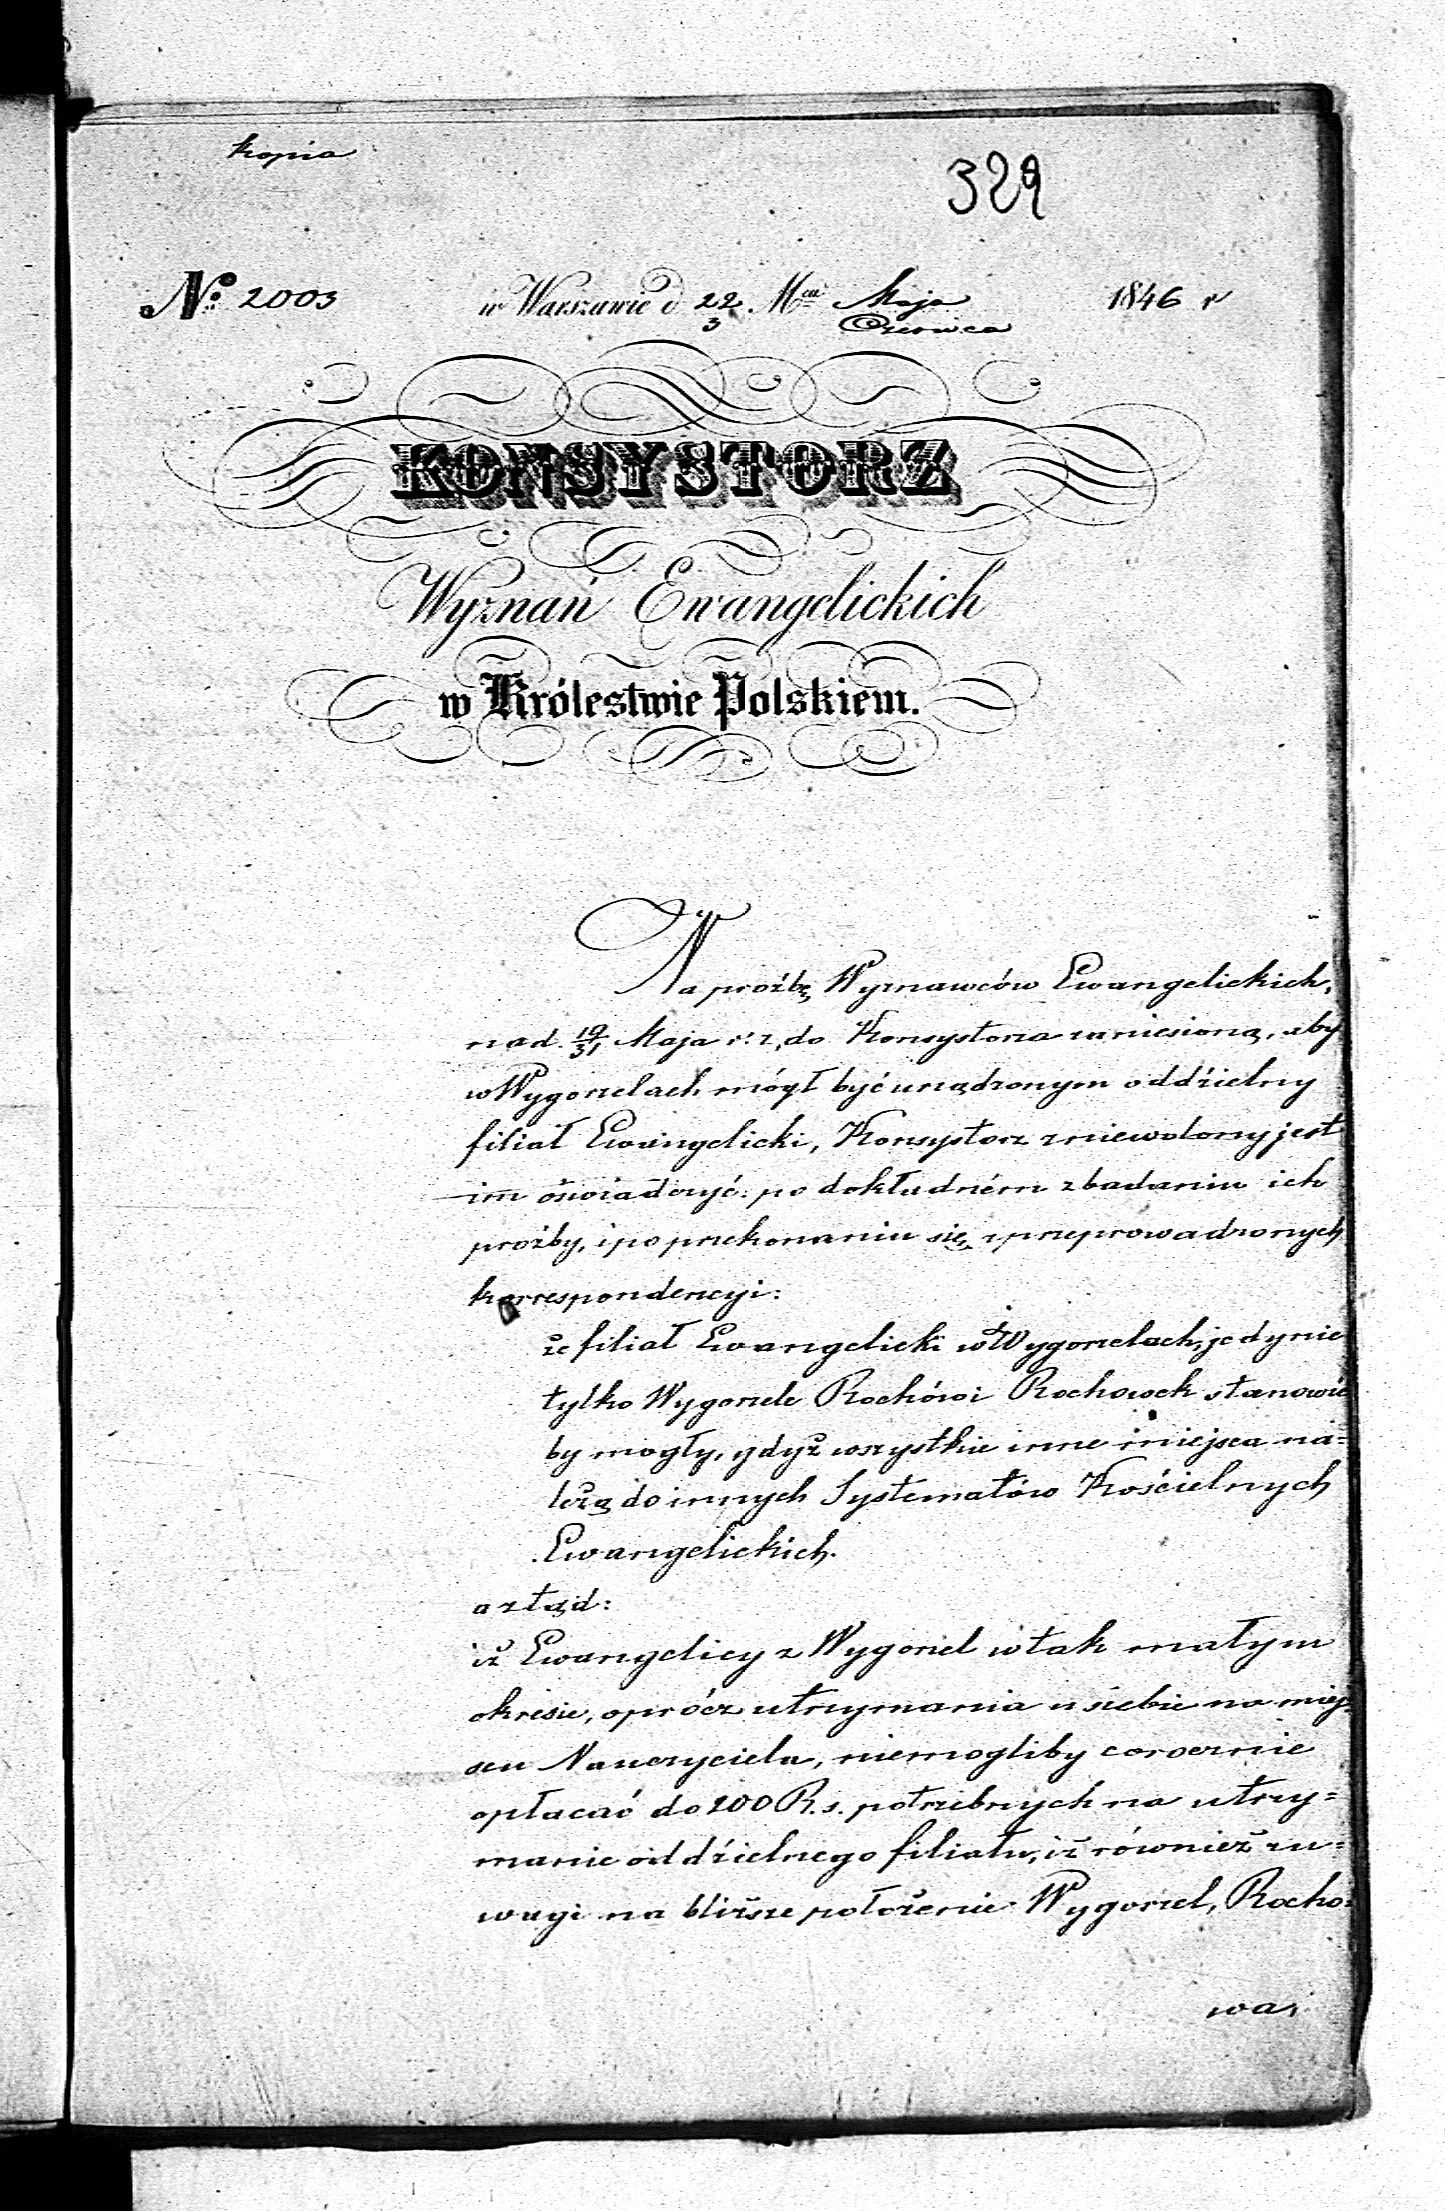 kopia
329
No 2003 w Warszawie d 22/3 Mca Maja/Czerwca 1846 r
KONSYSTORZ
Wyznań Ewangelickich
w Królestwie Polskiem.
Na proźbę Wyznawców Ewangelickich,
nad. 19/31 Maja r: z, do Konsystorza zaniesioną, aby
w Wygorzelach mógł być urządzonym oddźielny
filiał Ewangelicki, Konsystorz zniewolony jest
im oświadczyć: po dokładném zbadaniu ich
proźby, i po przekonaniu się z przeprowadzonych
korrespondencyi:
że filiał Ewangelicki w Wygorzelach, jedynie
tylko Wygorzele Rochów i Rochowek stanowić
by mogły, gdyż wszystkie inne miejsca na=
leżą do innych Systematów Kościelnych
Ewangelickich.
a ztąd:
iż Ewangelicy z Wygorzel w tak małym
okresie, oprócz utrzymania u siebie na miej
scu Nauczyciela, niemogliby corocznie
opłacać do 200 R. s. potrzebnych na utrzy=
manie oddźielnego filiału, iż również zu=
wagi na bliższe położenie Wygorzel, Rocho=
wa,